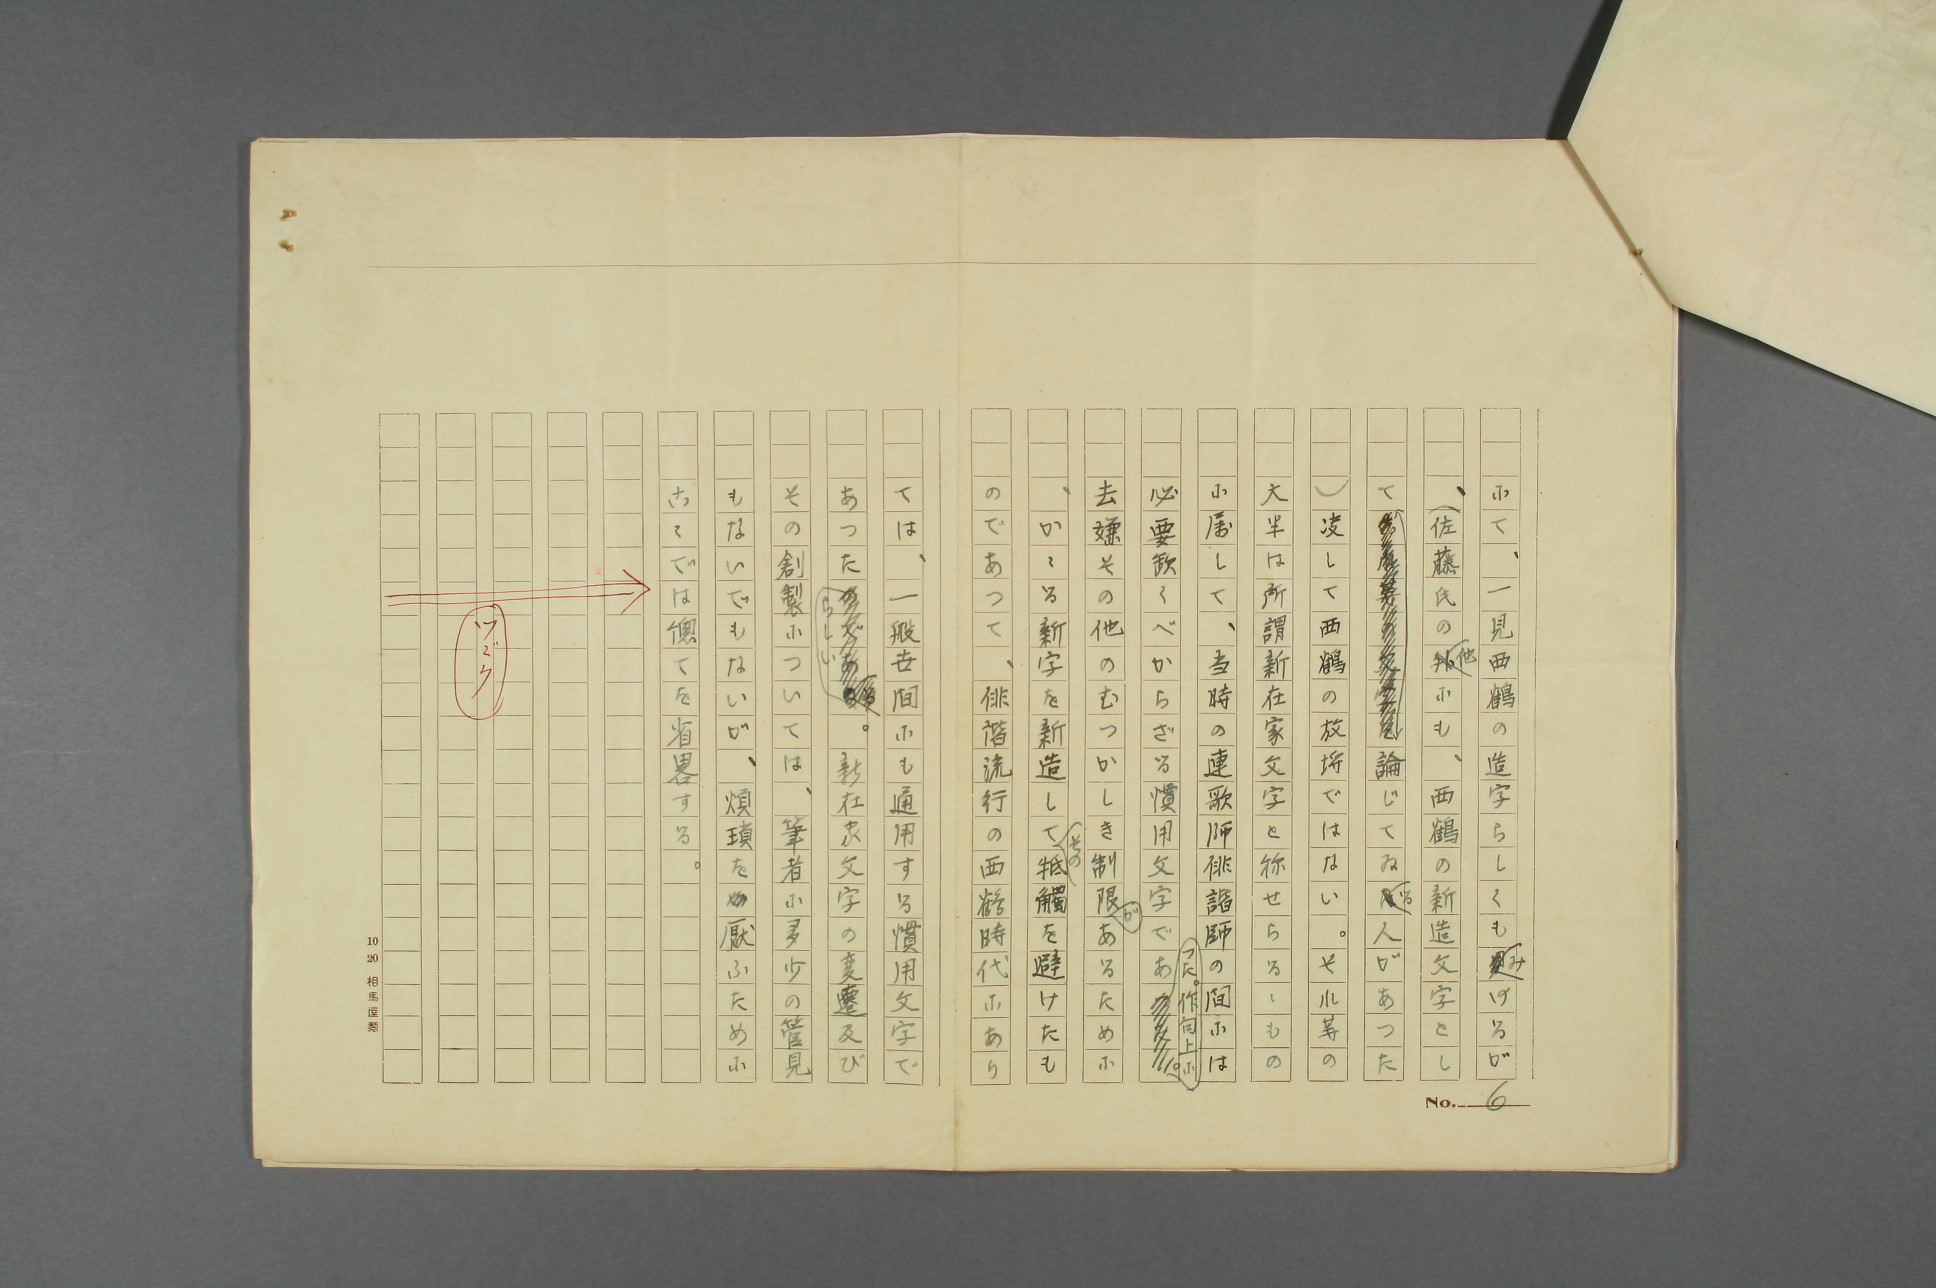 No. 6
にて、一見西鶴の造字らしくもみけるが
、（佐藤氏の他にも、西鶴の新造文字とし
て論じてゐる人があつた
）凌して西鶴の放埓ではない。それ等の
大半は所謂新在家文字と称せらるゝもの
に属して、当時の連歌師俳諧師の間には
必要欽くべからざる慣用文字であ
つた。作句上に
去嫌その他のむつかしき制限があるために
、かゝる新字を新造してその牴觸を避けたも
のであつて、俳諧流行の西鶴時代にあり
ては、一般世間にも通用する慣用文字で
あつたらしい。新在家文字の変遷及び
その創製については、筆者に多少の管見
もないでもないが、煩瑣を厭ふために
こゝでは凡てを省畧する。
ツヾク
10 20 相馬屋製